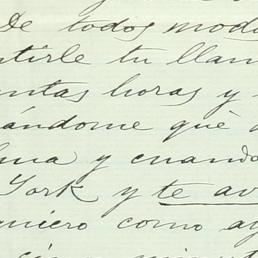 De todos mod
ntirle tu llam
untas horas y
ándome qué
y cuando
York y te av
quiero como